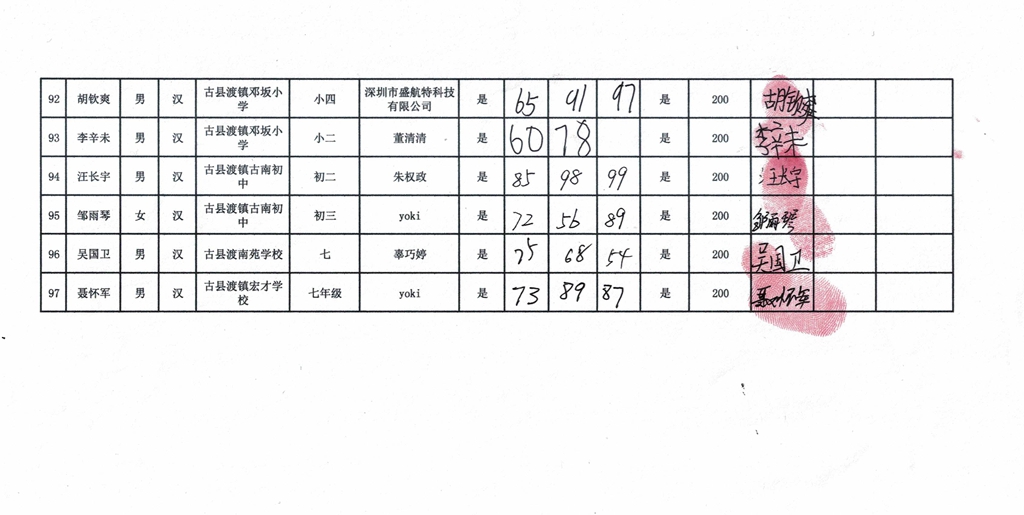 92 胡钦爽 男 汉 古县渡镇邓坂小学 小四 深圳市盛航特科技有限公司 是 65 91 97 是 200 胡钦爽
93 李辛未 男 汉 古县渡镇邓坂小学 小二 董清清 是 60 78 是 200 李辛未
94 汪长宇 男 汉 古县渡镇古南初中 初二 朱权政 是 85 98 99 是 200 汪长宇
95 邹雨琴 女 汉 古县渡镇古南初中 初三 yoki 是 72 56 89 是 200 邹雨琴
96 吴国卫 男 汉 古县渡南苑学校 七 辜巧婷 是 75 68 54 是 200 吴国卫
97 聂怀军 男 汉 古县渡镇宏才学校 七年级 yoki 是 73 89 87 是 200 聂怀军